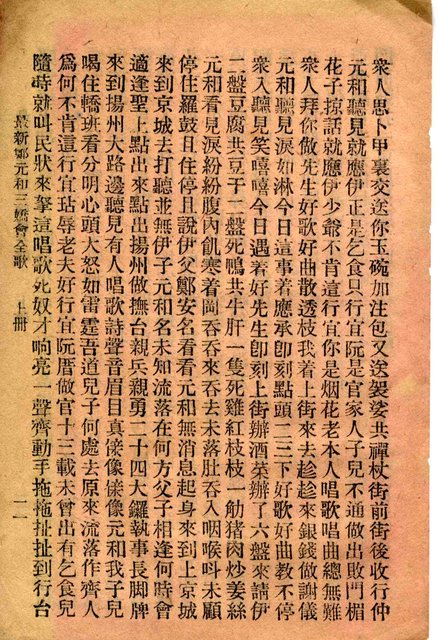 衆人思卜甲裏交送你玉碗加注包又送袈娑共禪杖街前街後收行仲
元和聽見就應伊正是乞食只行宜阮是官家人子兒不通做出敗門楣
花子掠話就應伊少爺不肯這行宜你是烟花老本人唱歌唱曲總無難
衆人拜你做先生好歌好曲散透枝我着上街來去趁趁來銀錢做謝儀
元和聽見淚如淋今日這事着應承卽刻點頭二三下好歌好曲教不停
衆入聽見笑嘻嘻今日遇着好先生卽刻上街辦酒菜辦了六盤來請伊
二盤豆腐共豆干二盤死鴨共牛肝一隻死雞紅枝枝一觔猪肉炒姜絲
元和看見淚紛紛腹內飢寒着罔吞吞來吞去未落肚吞入咽喉呌未顧
停住羅鼓且住停且說伊父鄭安名看看元和無消息起身來到上京城
來到京城去打聽並無伊子元和名未知流落在何方父子相逢何時會
適逢聖上點出來點出揚州做撫台親兵親勇二十四大鑼執事長脚牌
來到揚州大路邊聽見有人唱歌詩聲音眉目真像像像元和我子兒
喝住轎班看分明心頭大怒如雷霆吾道兒子何處去原來流落作齊人
爲何不肯這行宜玷辱老夫好行宜阮厝做官十三載未曾出有乞食兒
隨時就叫民狀來拏這唱歌死奴才响亮一聲齊動手拖拖扯扯到行台
最新鄭元和三嬌會全歌　上冊　二